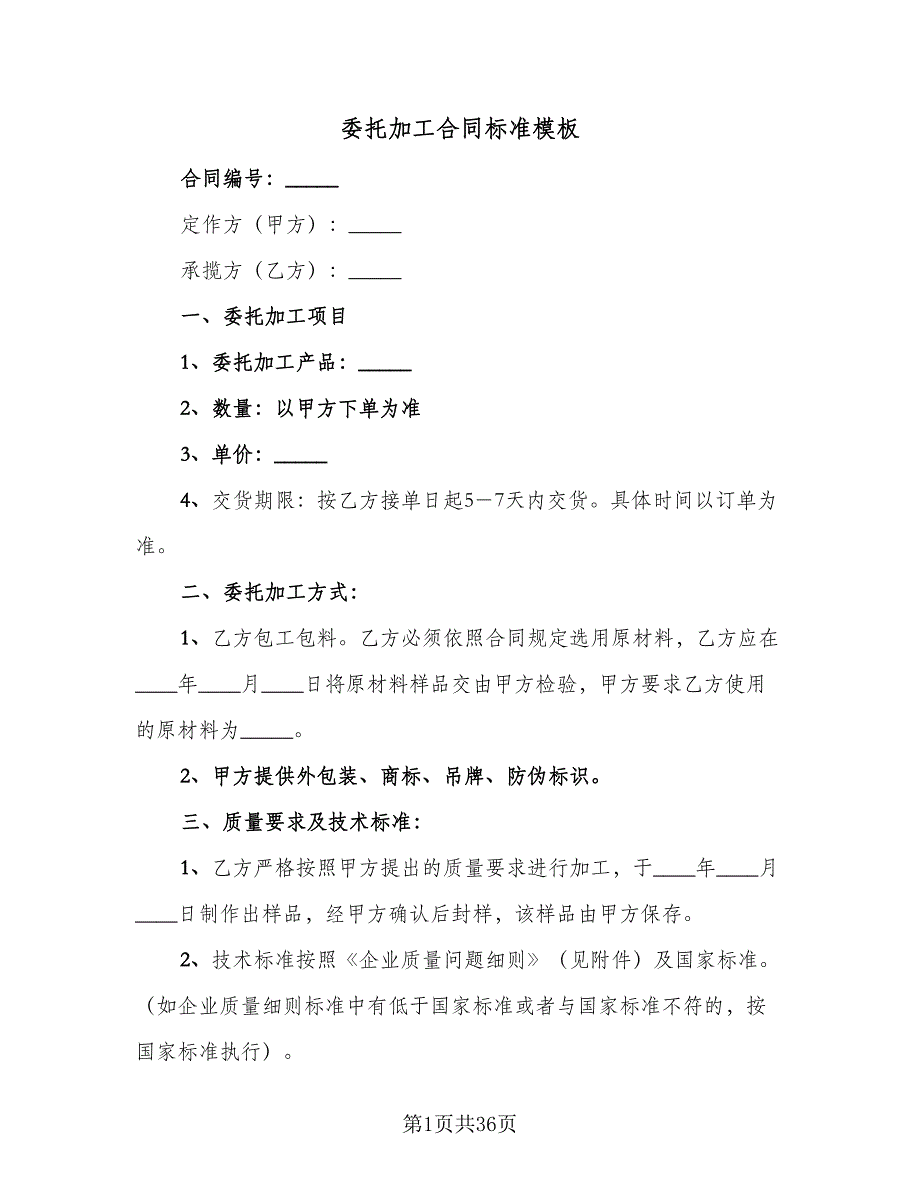 委托加工合同标准模板
合同编号：_____
定作方（甲方）：_____
承揽方（乙方）：_____
一、委托加工项目
1、委托加工产品：_____
2、数量：以甲方下单为准
3、单价：_____
4、交货期限：按乙方接单日起5－7天内交货。具体时间以订单为
准。
二、委托加工方式：
1、乙方包工包料。乙方必须依照合同规定选用原材料，乙方应在
____年____月____日将原材料样品交由甲方检验，甲方要求乙方使用
的原材料为_____。
2、甲方提供外包装、商标、吊牌、防伪标识。
三、质量要求及技术标准：
1、乙方严格按照甲方提出的质量要求进行加工，于____年____月
____日制作出样品，经甲方确认后封样，该样品由甲方保存。
2、技术标准按照《企业质量问题细则》（见附件）及国家标准。
（如企业质量细则标准中有低于国家标准或者与国家标准不符的，按
国家标准执行）。
第1页共36页